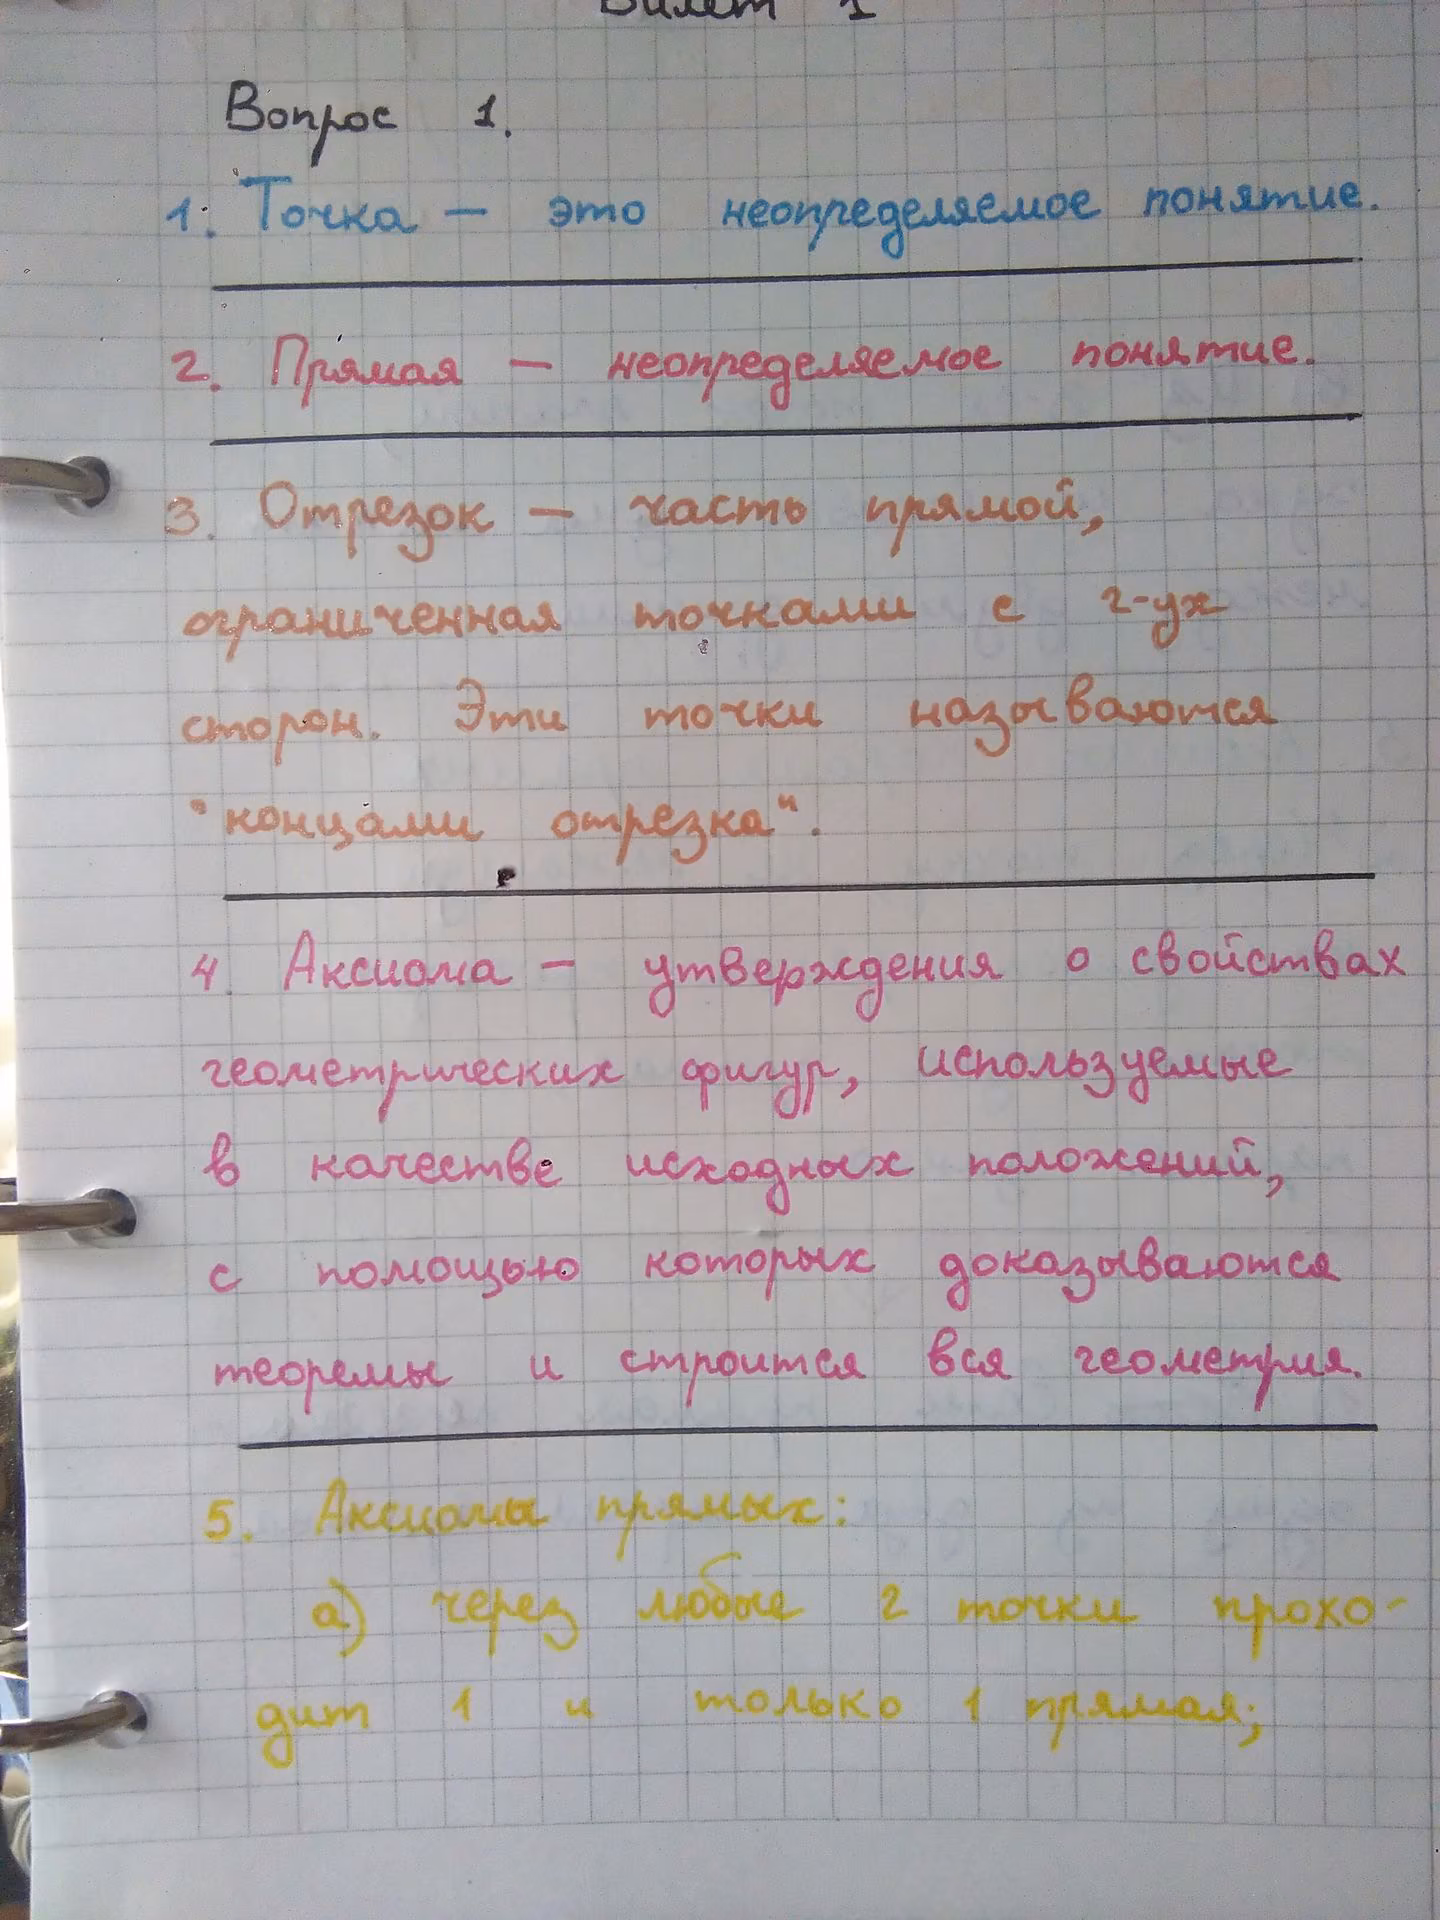 Билет 1
Вопрос 1.
1. Точка — это неопределяемое понятие.
2. Прямая — неопределяемое понятие.
3. Отрезок — часть прямой,
ограниченная точками с 2-ух
сторон. Эти точки называются
"концами отрезка".
4. Аксиома — утверждения о свойствах
геометрических фигур, используемые
в качестве исходных положений,
с помощью которых доказываются
теоремы и строится вся геометрия.
5. Аксиомы прямых:
а) через любые 2 точки прохо-
дит 1 и только 1 прямая;